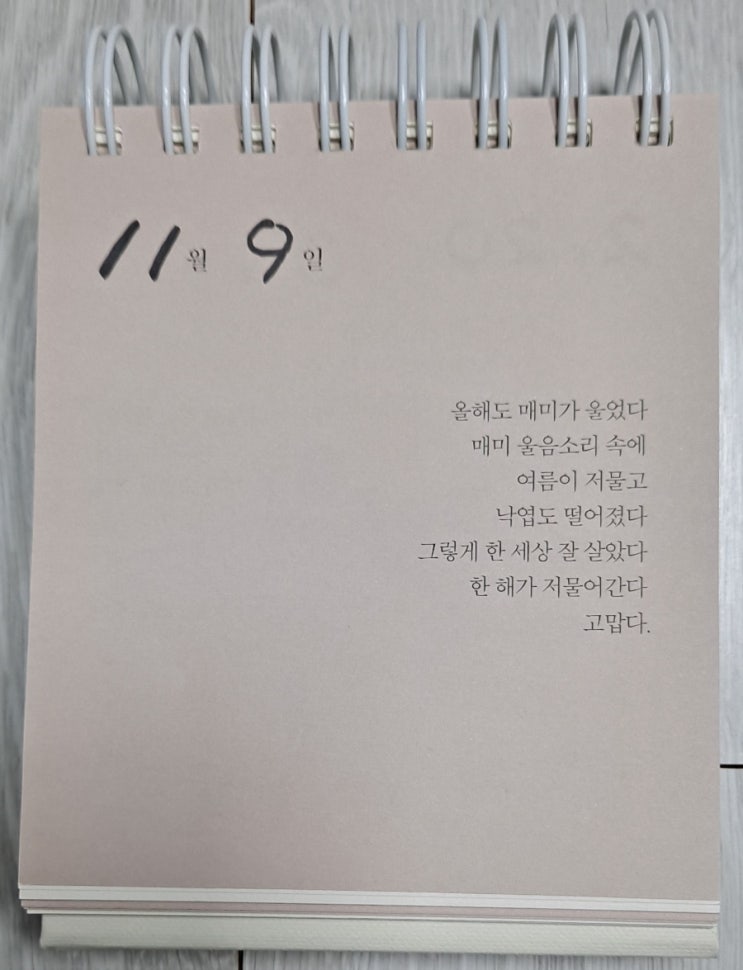 11월 9일
올해도 매미가 울었다
매미 울음소리 속에
여름이 저물고
낙엽도 떨어졌다
그렇게 한 세상 잘 살았다
한 해가 저물어간다
고맙다.